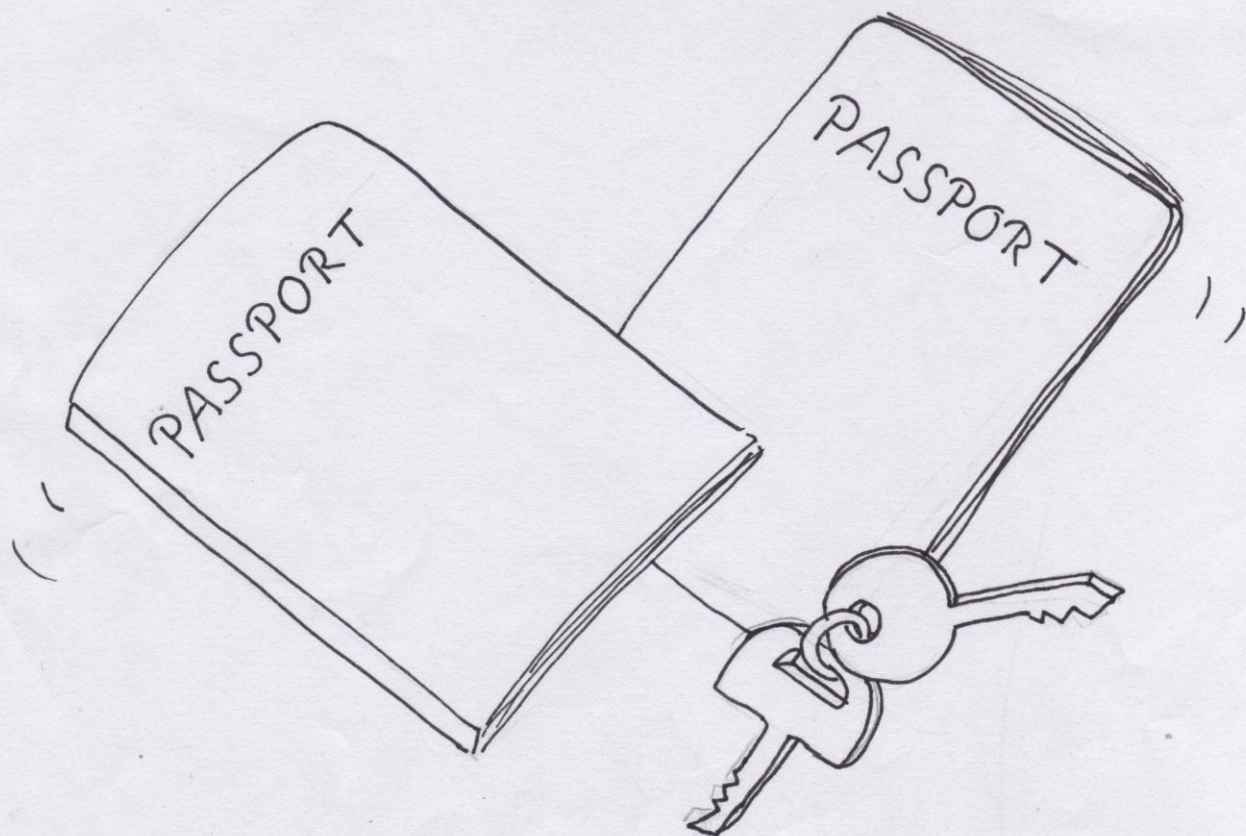 PASSPORT
PASSPORT